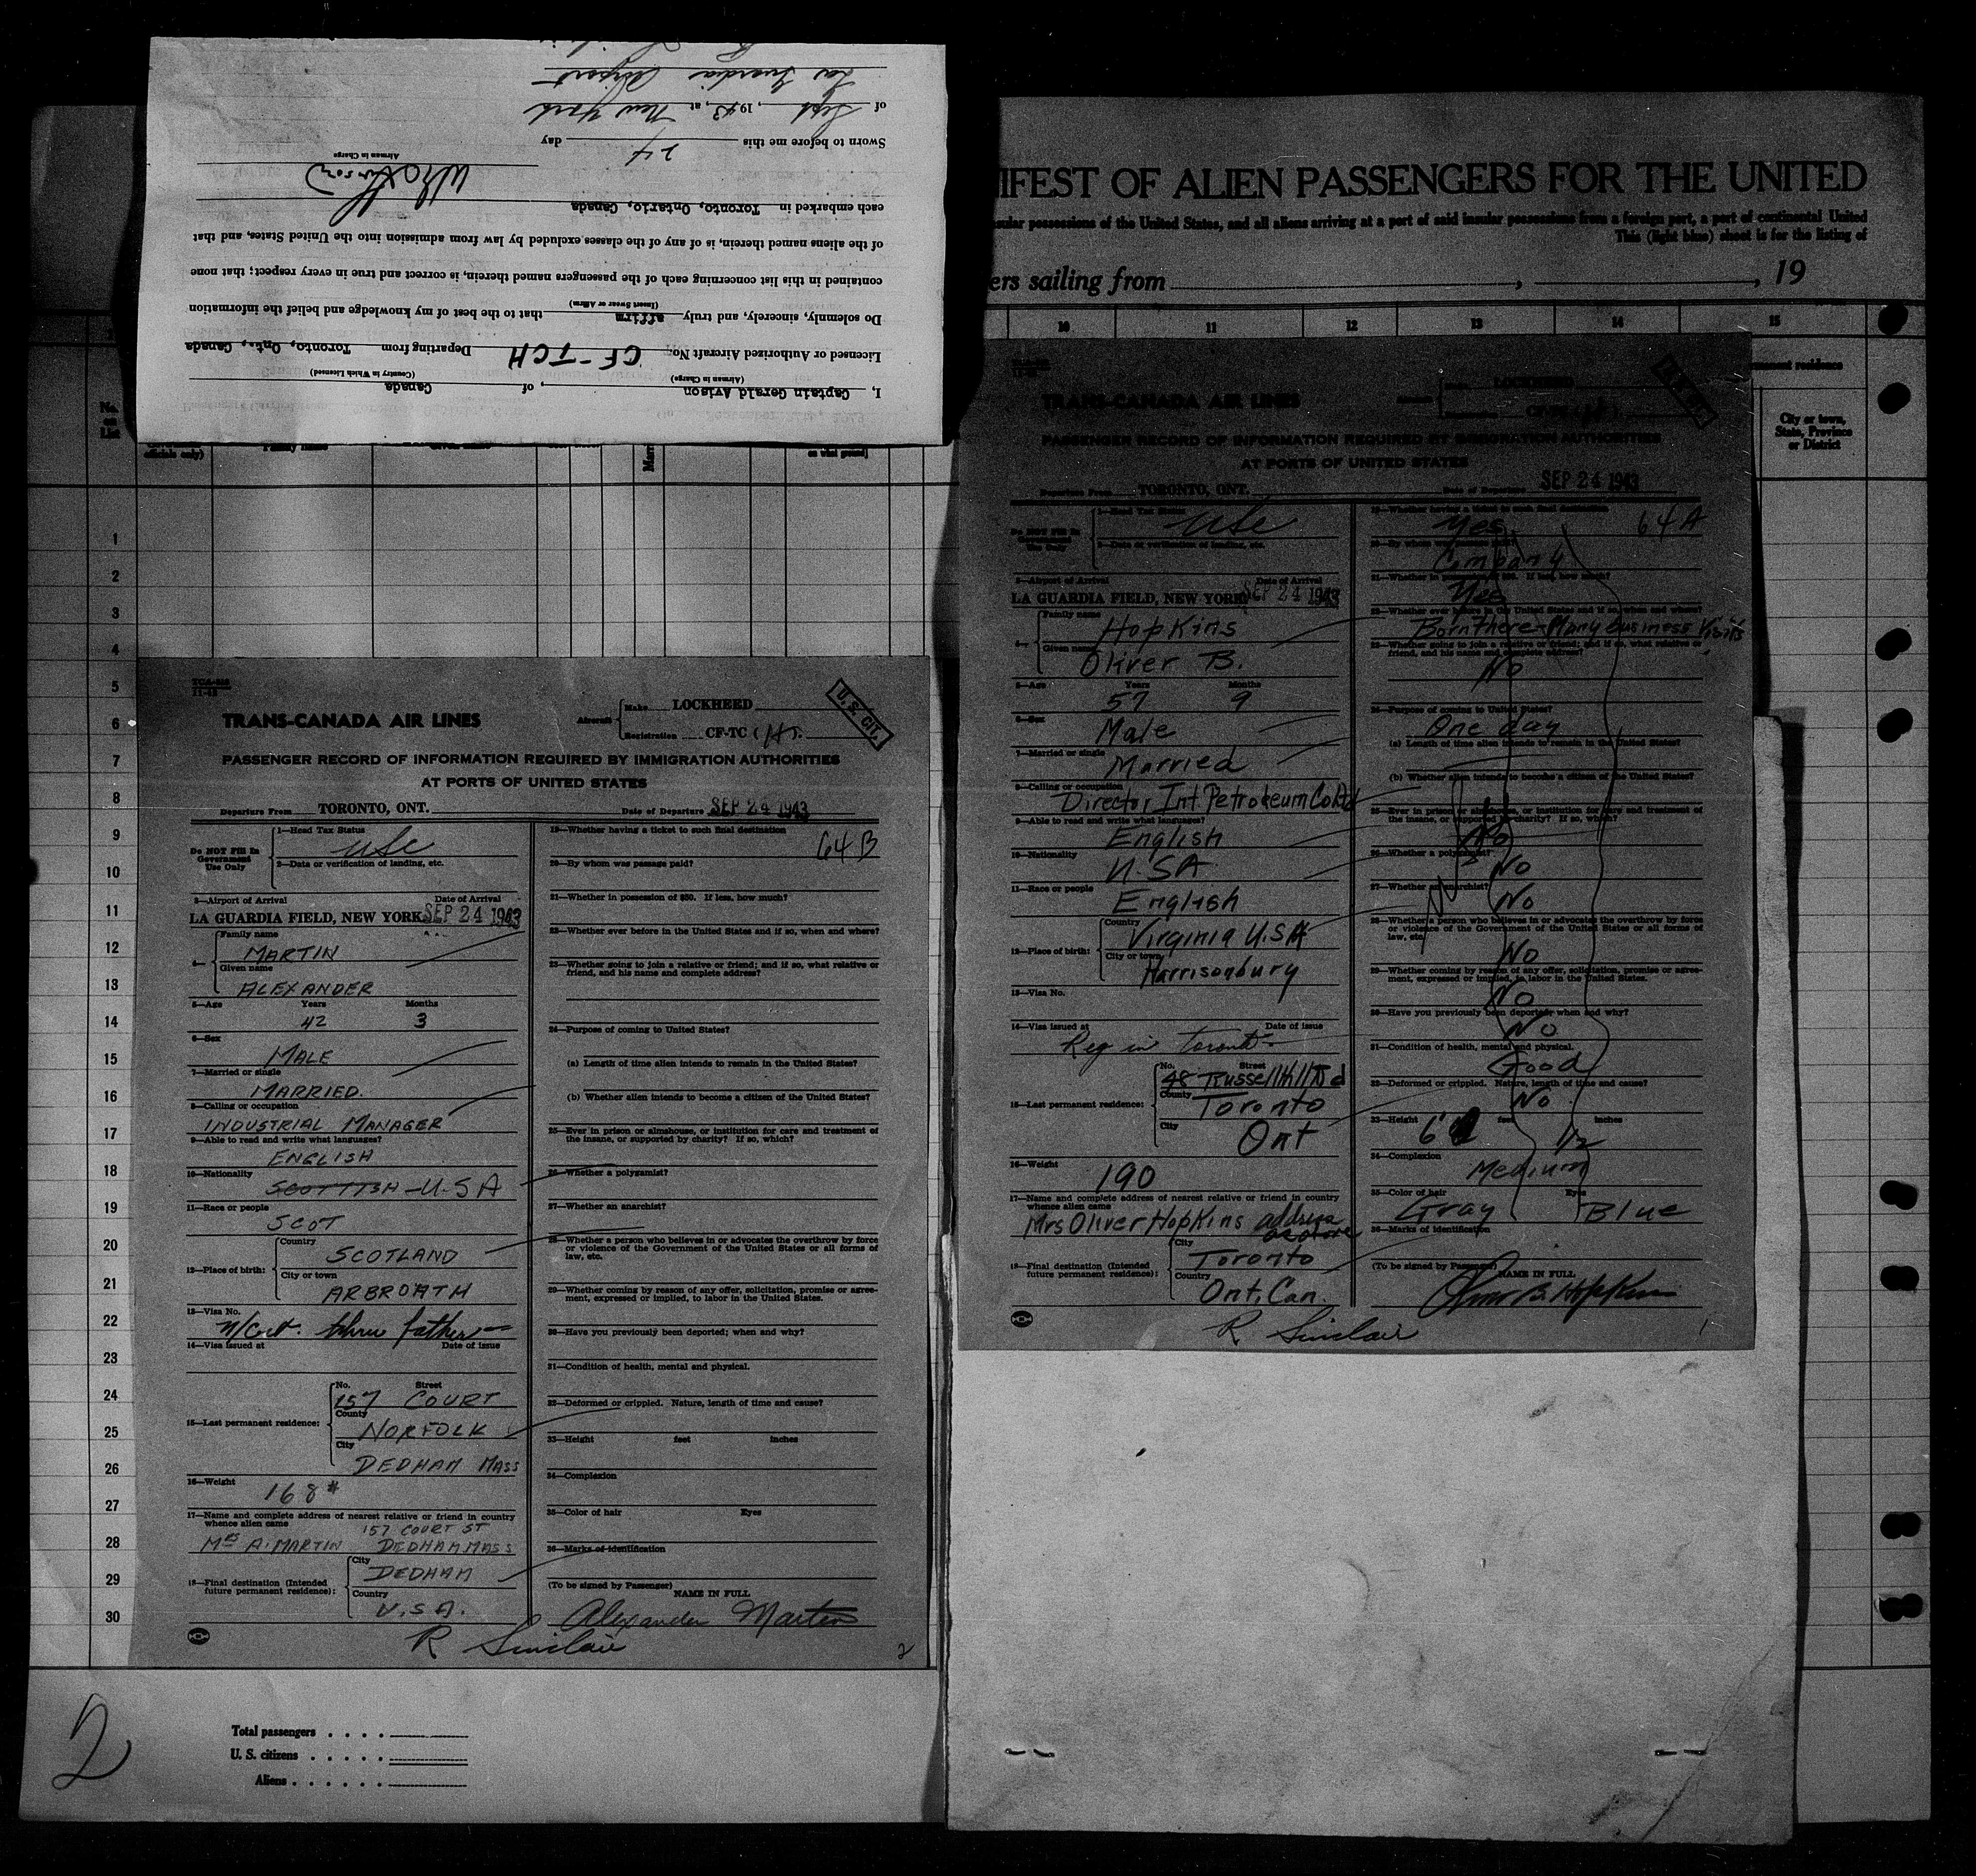 I, Captain Gerald Avison, of Canada
(Airman in Charge) (Country in Which Licensed)
Licensed or Authorized Aircraft No. CF-TCH Departing from Toronto, Ont., Canada
Do solemnly, sincerely, and truly affirm that to the best of my knowledge and belief the information
(Insert Swear or Affirm)
contained in this list concerning each of the passengers named therein, is correct and true in every respect; that none
of the aliens named therein, is of any of the classes excluded by law from admission into the United States, and that
each embarked in Toronto, Ontario, Canada
Airman in Charge
Sworn to before me this 24 day
of Sept, 1943, at New York
La Guardia Airport
IFEST OF ALIEN PASSENGERS FOR THE UNITED
sular possessions of the United States, and all aliens arriving at a port of said insular possessions from a foreign port, a port of continental United
This (light blue) sheet is for the listing of
ers sailing from , , 19
10 11 12 13 14 15
manent residence
City or town,
State, Province
or District
No.
on
List
officials only) Family name
1
2
3
4
5
6
7
8
9
10
11
12
13
14
15
16
17
18
19
20
21
22
23
24
25
26
27
28
29
30
TRANS-CANADA AIR LINES
Aircraft Make LOCKHEED
Registration CF-TC (H).
U.S. CIT.
PASSENGER RECORD OF INFORMATION REQUIRED BY IMMIGRATION AUTHORITIES
AT PORTS OF UNITED STATES
Departure From TORONTO, ONT. Date of Departure SEP 24 1943
Do NOT Fill In
Government
Use Only
1—Head Tax Status
USC
2—Date or verification of landing, etc.
3—Airport of Arrival Date of Arrival
LA GUARDIA FIELD, NEW YORK SEP 24 1943
4— Family name
MARTIN
Given name
ALEXANDER
5—Age Years Months
42 3
6—Sex
MALE
7—Married or single
MARRIED.
8—Calling or occupation
INDUSTRIAL MANAGER
9—Able to read and write what languages?
ENGLISH
10—Nationality
SCOTTISH - U.S A
11—Race or people
SCOT
12—Place of birth: Country
SCOTLAND
City or town
ARBROATH
13—Visa No.
N/Cert. thru father
14—Visa issued at Date of issue
15—Last permanent residence: No. Street
157 COURT
County
NORFOLK
City
DEDHAM MASS
16—Weight
168#
17—Name and complete address of nearest relative or friend in country
whence alien came
157 COURT ST
MRS A. MARTIN DEDHAM MASS
18—Final destination (Intended
future permanent residence): City
DEDHAM
Country
U.S.A.
19—Whether having a ticket to such final destination
64 B
20—By whom was passage paid?
21—Whether in possession of $50. If less, how much?
22—Whether ever before in the United States and if so, when and where?
23—Whether going to join a relative or friend; and if so, what relative or
friend, and his name and complete address?
24—Purpose of coming to United States?
(a) Length of time alien intends to remain in the United States?
(b) Whether alien intends to become a citizen of the United States?
25—Ever in prison or almshouse, or institution for care and treatment of
the insane, or supported by charity? If so, which?
26—Whether a polygamist?
27—Whether an anarchist?
28—Whether a person who believes in or advocates the overthrow by force
or violence of the Government of the United States or all forms of
law, etc.
29—Whether coming by reason of any offer, solicitation, promise or agree-
ment, expressed or implied, to labor in the United States.
30—Have you previously been deported; when and why?
31—Condition of health, mental and physical.
32—Deformed or crippled. Nature, length of time and cause?
33—Height feet inches
34—Complexion
35—Color of hair Eyes
36—Marks of identification
(To be signed by Passenger) NAME IN FULL
Alexander Martin
R Sinclair
2
TRANS-CANADA AIR LINES
LOCKHEED
PASSENGER RECORD OF INFORMATION REQUIRED BY IMMIGRATION AUTHORITIES
AT PORTS OF UNITED STATES
Departure From TORONTO, ONT. Date of Departure SEP 24 1943
Do NOT Fill In
Government
Use Only
1—Head Tax Status
USC
2—Date or verification of landing, etc.
3—Airport of Arrival Date of Arrival
LA GUARDIA FIELD, NEW YORK SEP 24 1943
4— Family name
Hopkins
Given name
Oliver B.
5—Age Years Months
57 9
6—Sex
Male
7—Married or single
Married
8—Calling or occupation
Director Int. Petroleum Co Ltd
9—Able to read and write what languages?
English
10—Nationality
U.S A
11—Race or people
English
12—Place of birth: Country
Virginia U.S.A
City or town
Harrisonburg
13—Visa No.
14—Visa issued at Date of issue
Reg in Toronto
15—Last permanent residence: No. Street
48 Russell Hill Rd
County
Toronto
City
Ont
16—Weight
190
17—Name and complete address of nearest relative or friend in country
whence alien came
Mrs Oliver Hopkins address as above
18—Final destination (Intended
future permanent residence): City
Toronto
Country
Ont, Can.
19—Whether having a ticket to such final destination
Yes 64 A
20—By whom was passage paid?
Company
21—Whether in possession of $50. If less, how much?
Yes
22—Whether ever before in the United States and if so, when and where?
Born there - Many business visits
23—Whether going to join a relative or friend; and if so, what relative or
friend, and his name and complete address?
No
24—Purpose of coming to United States?
One day
(a) Length of time alien intends to remain in the United States?
(b) Whether alien intends to become a citizen of the United States?
25—Ever in prison or almshouse, or institution for care and treatment of
the insane, or supported by charity? If so, which?
No
26—Whether a polygamist?
No
27—Whether an anarchist?
No
28—Whether a person who believes in or advocates the overthrow by force
or violence of the Government of the United States or all forms of
law, etc.
No
29—Whether coming by reason of any offer, solicitation, promise or agree-
ment, expressed or implied, to labor in the United States.
No
30—Have you previously been deported; when and why?
No
31—Condition of health, mental and physical.
Good
32—Deformed or crippled. Nature, length of time and cause?
No
33—Height feet inches
6 1/2
34—Complexion
Medium
35—Color of hair Eyes
Gray Blue
36—Marks of identification
(To be signed by Passenger) NAME IN FULL
Oliver B. Hopkins
R Sinclair
1
2
Total passengers . . . .
U. S. citizens . . . . .
Aliens . . . . . .